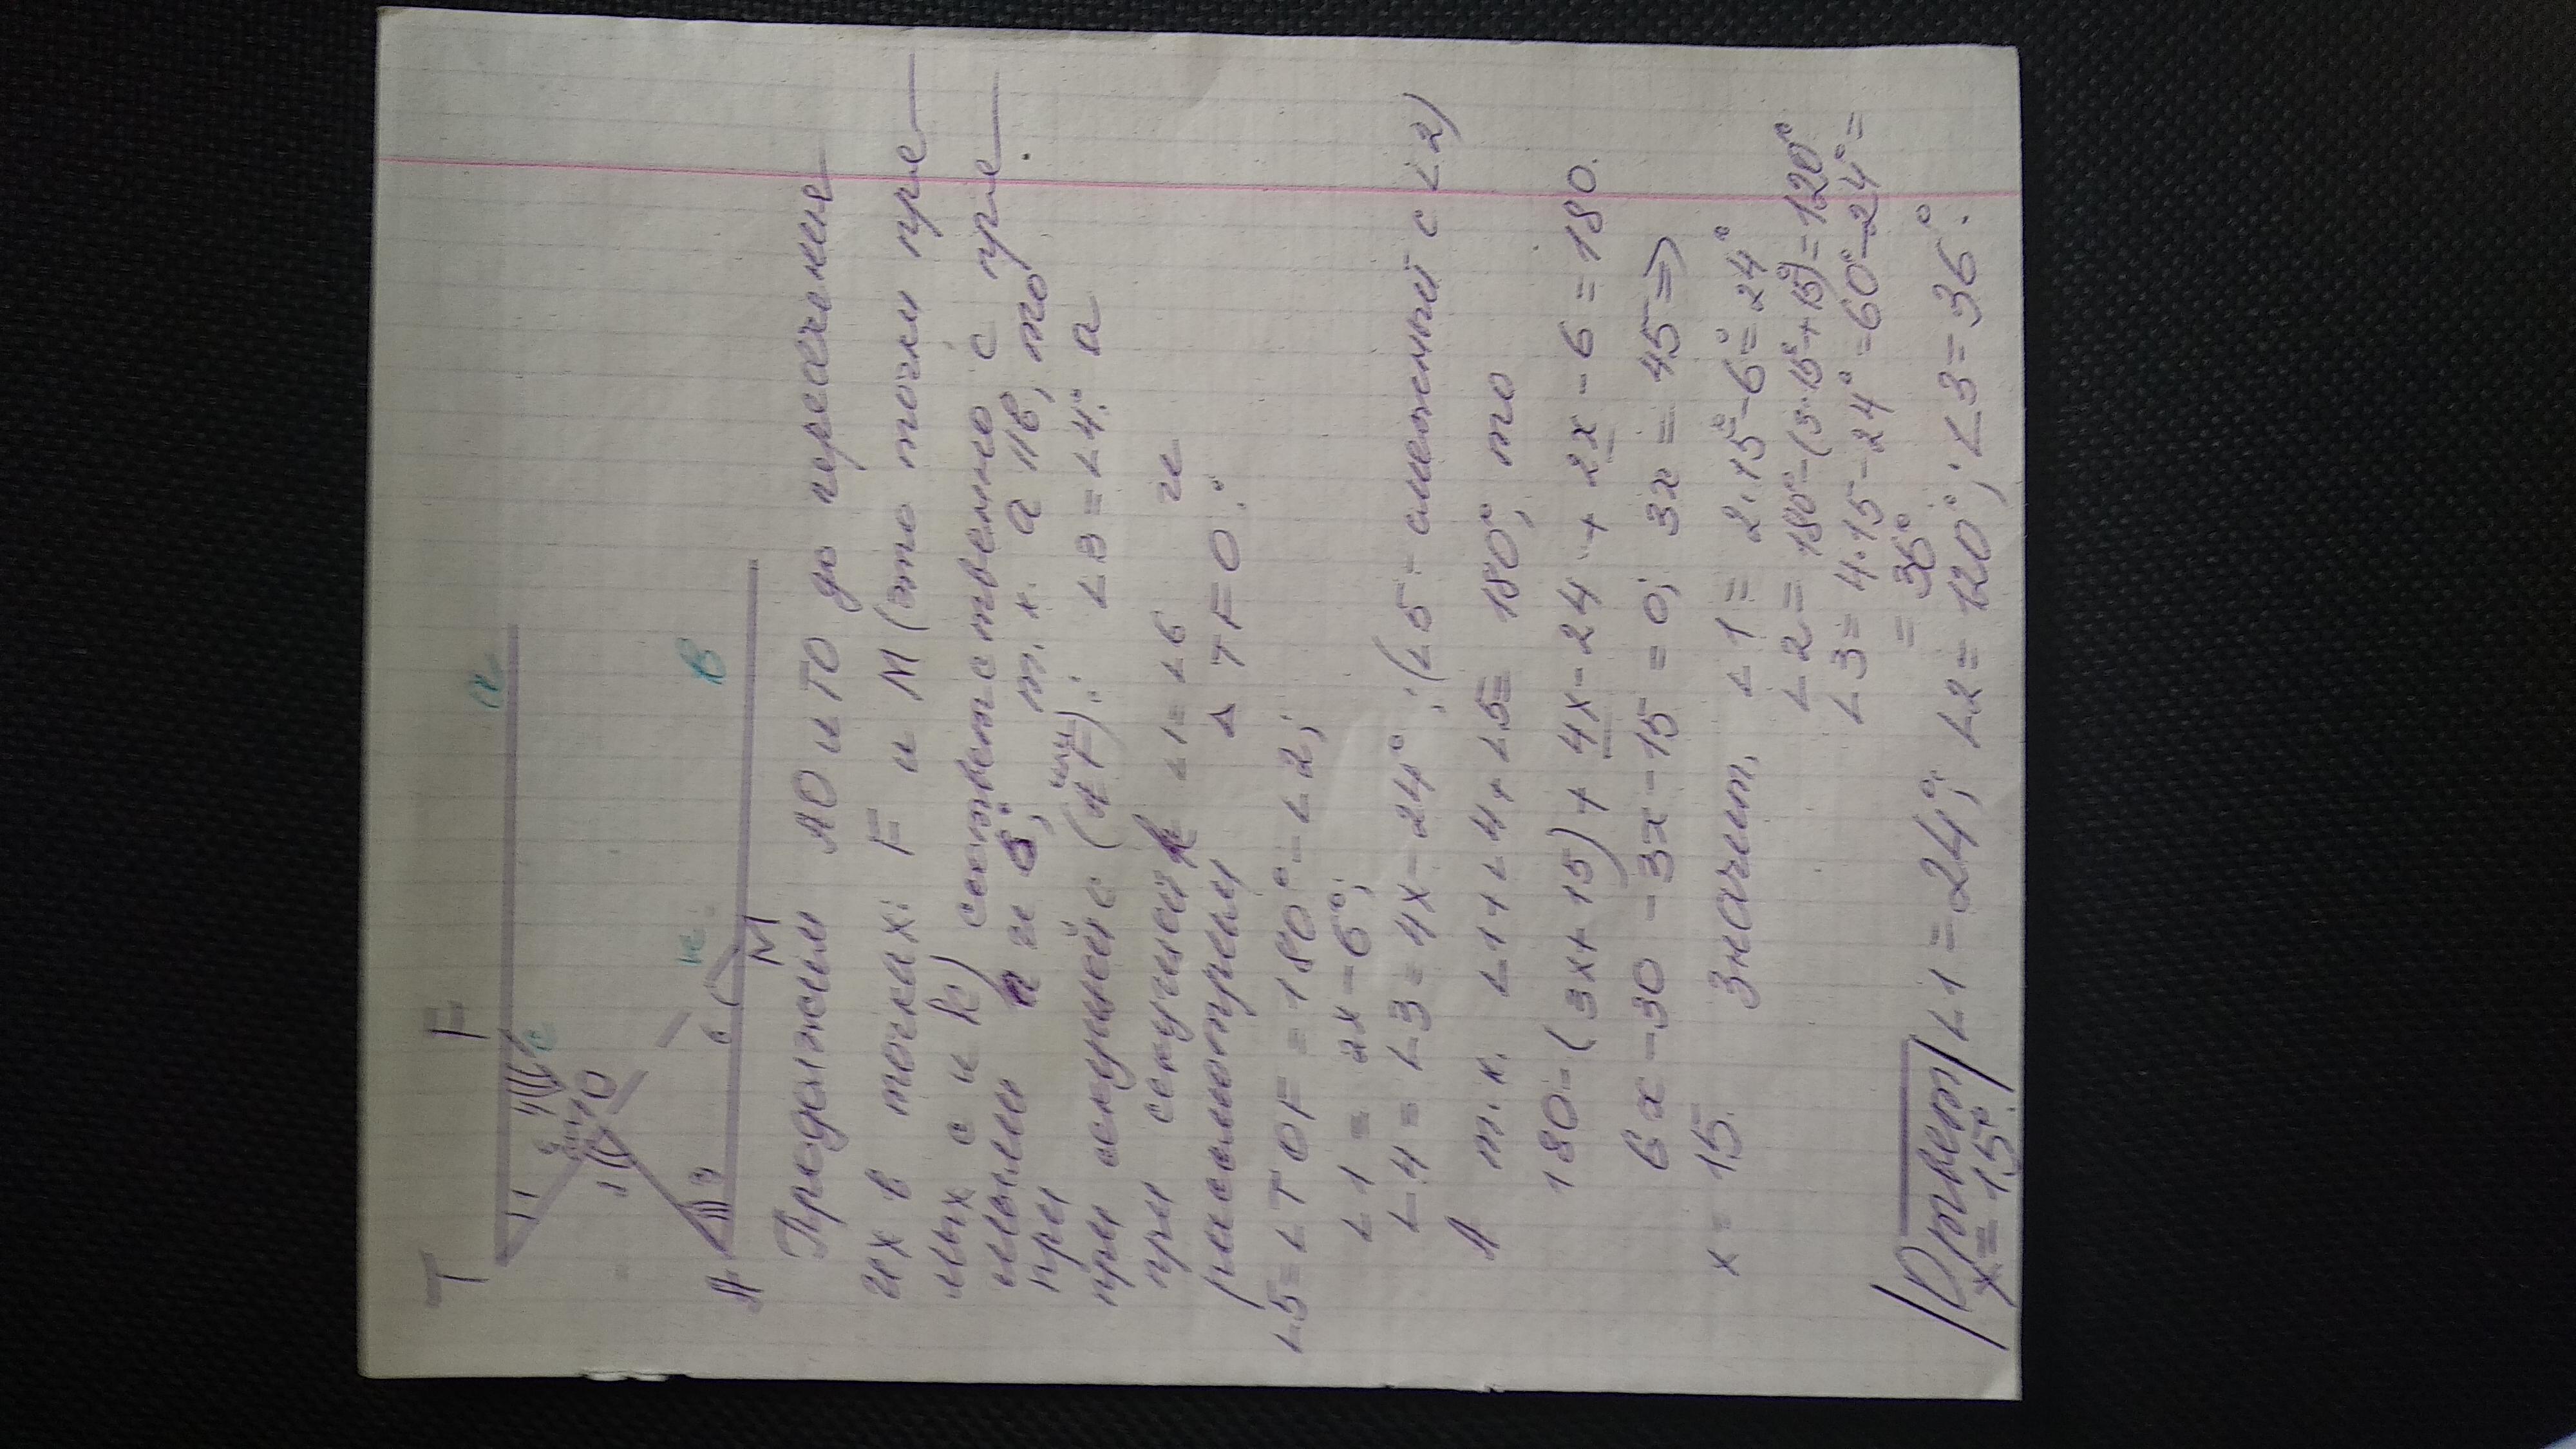 T F
a
1 4 c
6 5 O
2
к
3 6 В
А М
Продолжим АО и ТО до пересечения
их в точках: F и М (это точки пря
мых с и к) соответственно с пря
мыми а и в; т.к. а || в, то
при секущей с (AF): ∠3 = ∠4, а
при секущей к ∠1 = ∠6 и
рассмотрим Δ TFO:
∠5 = ∠TOF = 180° - ∠2;
∠1 = 2x - 6°;
∠4 = ∠3 = 4x - 24°; (∠5 - смежный с ∠2)
А т.к. ∠1 + ∠4 + ∠5 = 180°, то
180 - (3x + 15) + 4x - 24 + 2x - 6 = 180.
6x - 30 - 3x - 15 = 0; 3x = 45 =>
x = 15. Значит, ∠1 = 2·15° - 6° = 24°
∠2 = 180° - (3·15° + 15°) = 120°
∠3 = 4·15 - 24° = 60° - 24° =
= 36°
/Ответ/ ∠1 = 24°; ∠2 = 120°; ∠3 = 36°.
x = 15°.